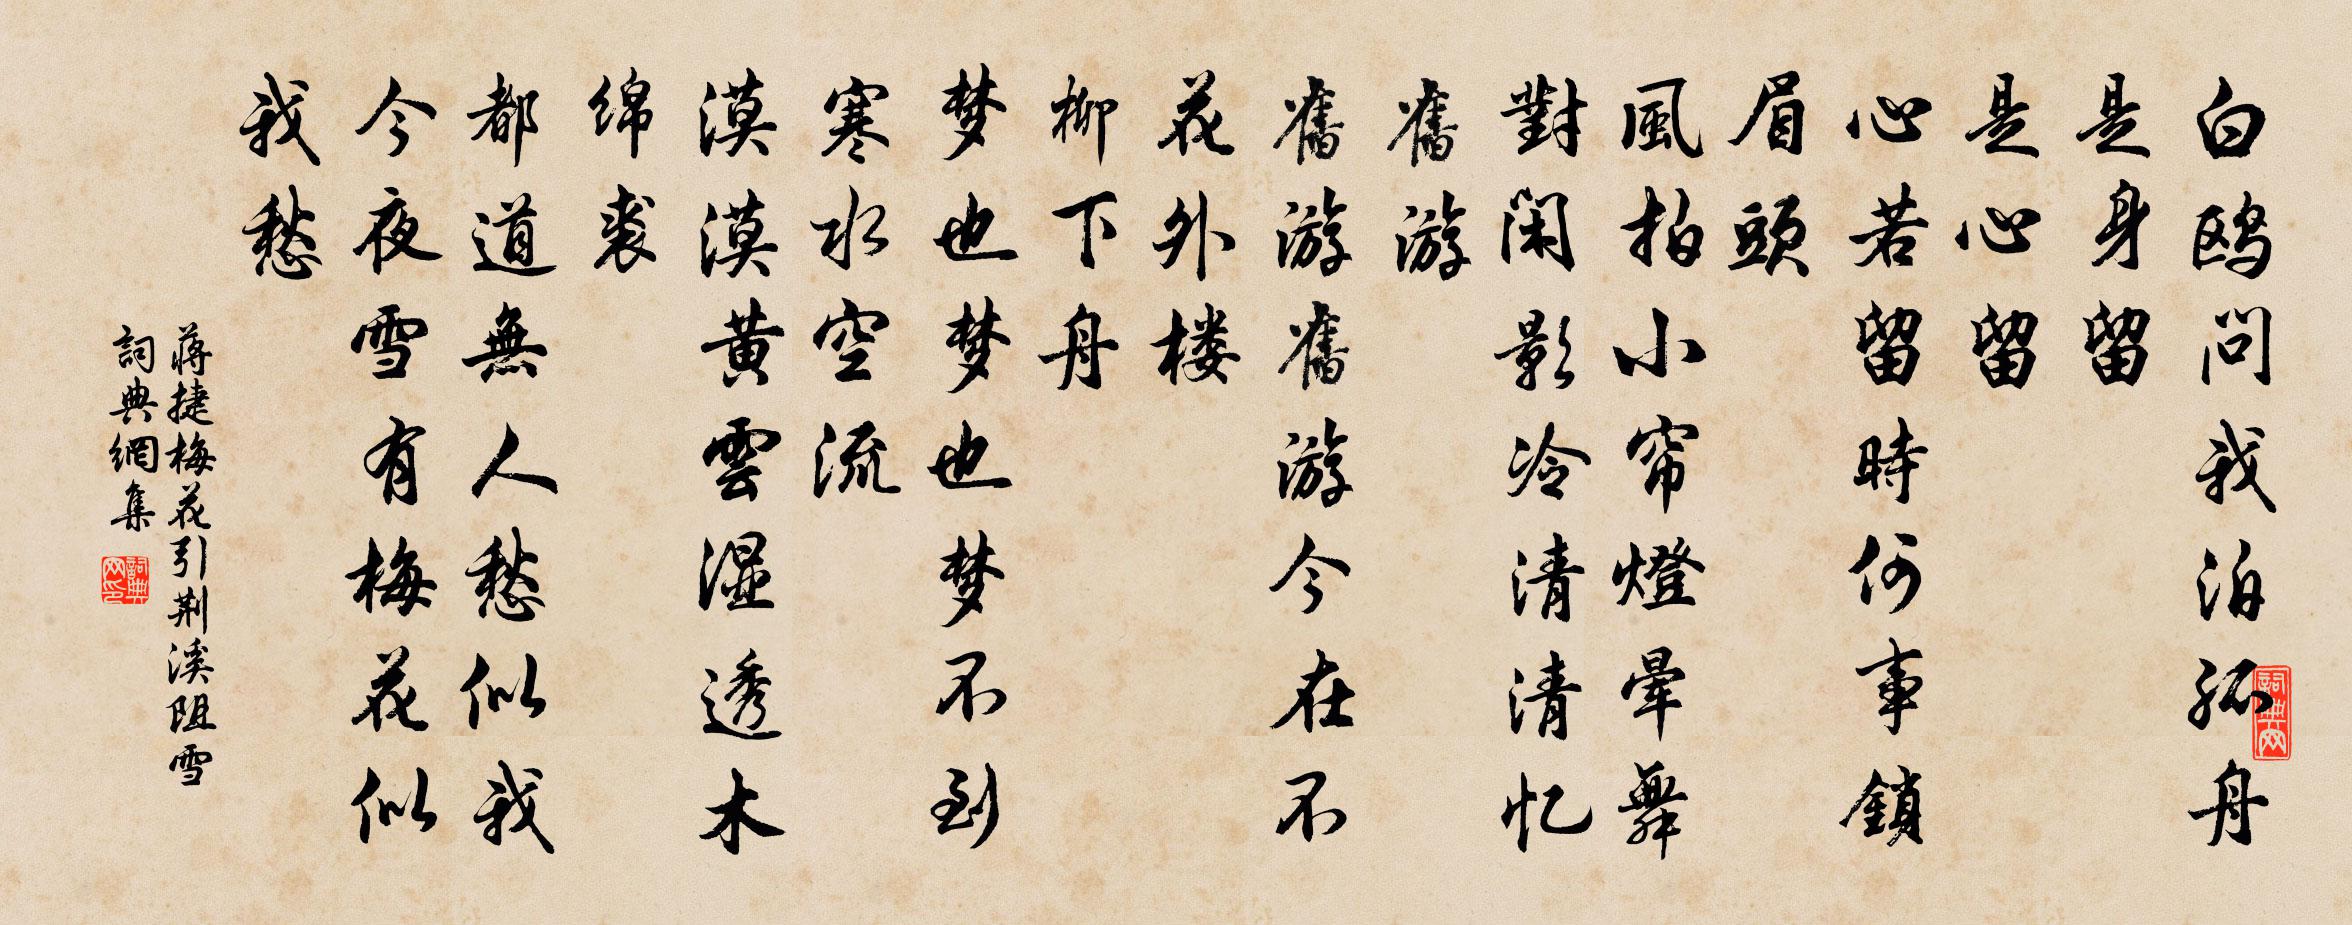 白鸥问我泊孤舟
是身留
是心留
心若留時何事鎖
眉頭
風拍小帘燈暈舞
對闲影冷清清忆
舊游
舊游舊游今在不
花外楼
柳下舟
梦也梦也梦不到
寒水空流
漠漠黄雲湿透木
绵裘
都道無人愁似我
今夜雪有梅花似
我愁
蒋捷梅花引荆溪阻雪
詞典網集
詞典网印
詞典网